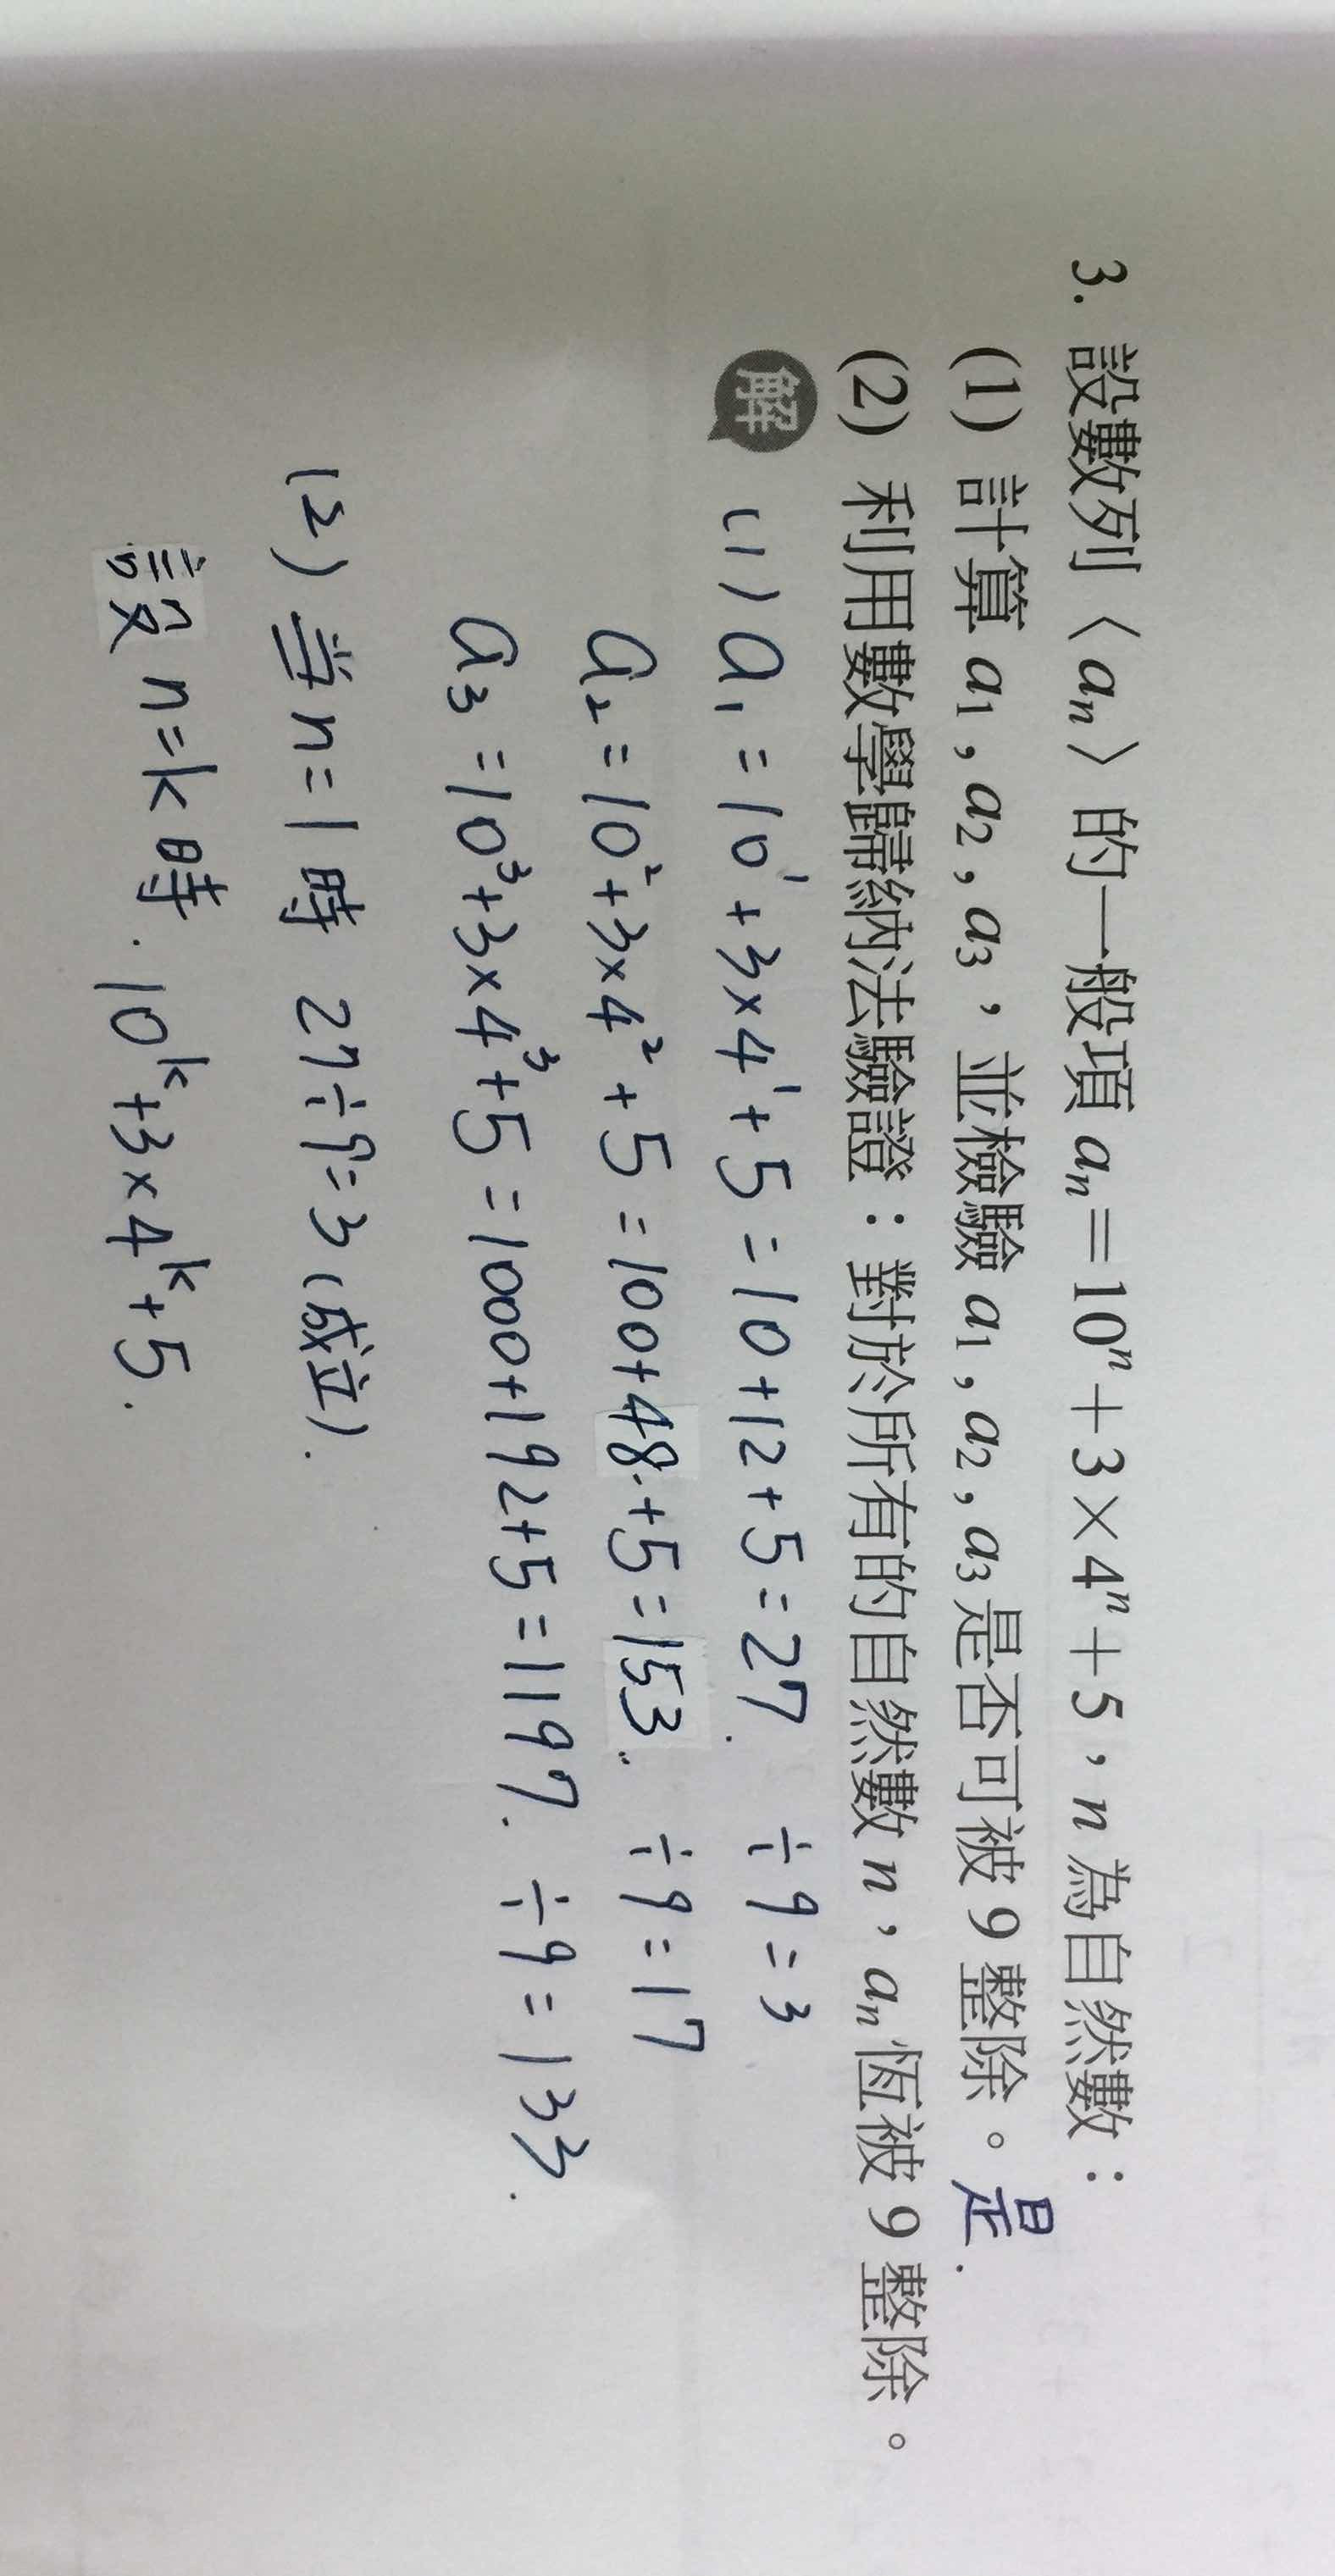 3. 設數列〈aₙ〉的一般項 aₙ=10ⁿ+3×4ⁿ+5,n 為自然數:
(1) 計算 a₁,a₂,a₃,並檢驗 a₁,a₂,a₃是否可被 9 整除。是.
(2) 利用數學歸納法驗證:對於所有的自然數 n,aₙ恆被 9 整除。
解 (1) a₁=10¹+3×4¹+5=10+12+5=27. ÷9=3
a₂=10²+3×4²+5=100+48+5=153. ÷9=17
a₃=10³+3×4³+5=1000+192+5=1197. ÷9=133.
(2) 當n=1時 27÷9=3(成立).
設n=k時.10ᵏ+3×4ᵏ+5.